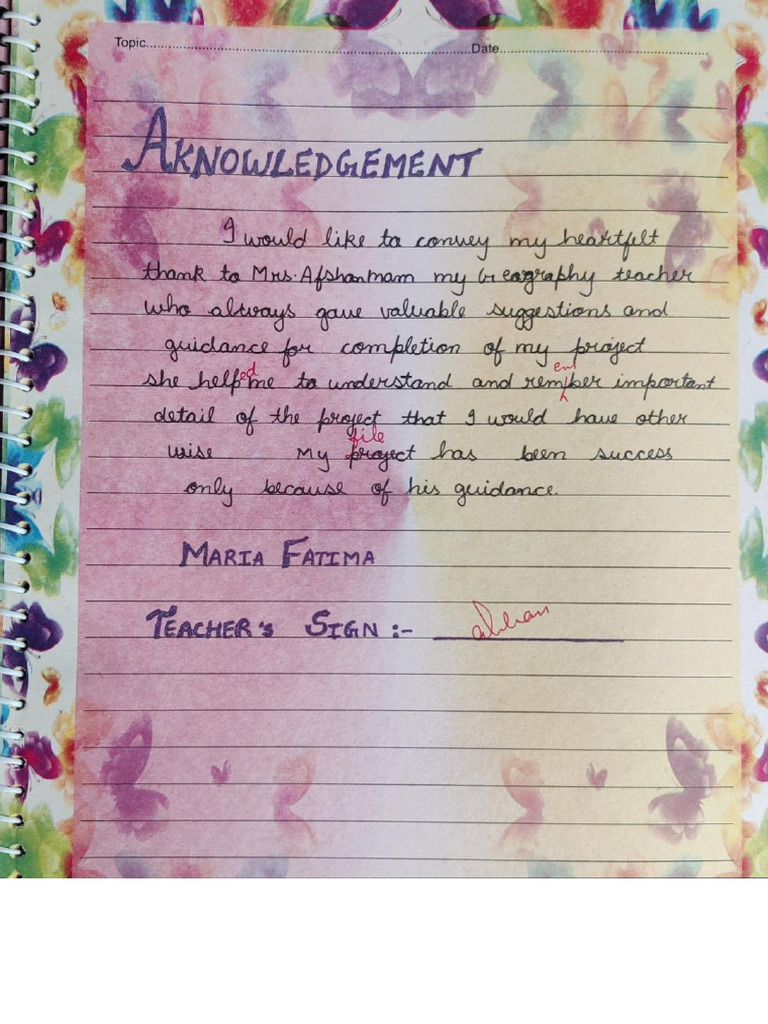 Topic........................Date........................
AKNOWLEDGEMENT
I would like to convey my heartfelt
thank to Mrs. Afshan mam my Geography teacher
who always gave valuable suggestions and
guidance for completion of my project
she helped me to understand and remember important
detail of the project that I would have other
wise My project file has been success
only because of his guidance.
MARIA FATIMA
TEACHER'S SIGN :-